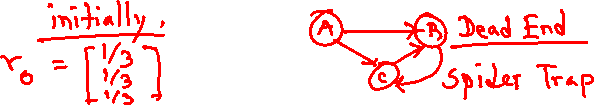 initially,
r0 = [1/3
1/3
1/3]
A
B
C
Dead End
Spider Trap